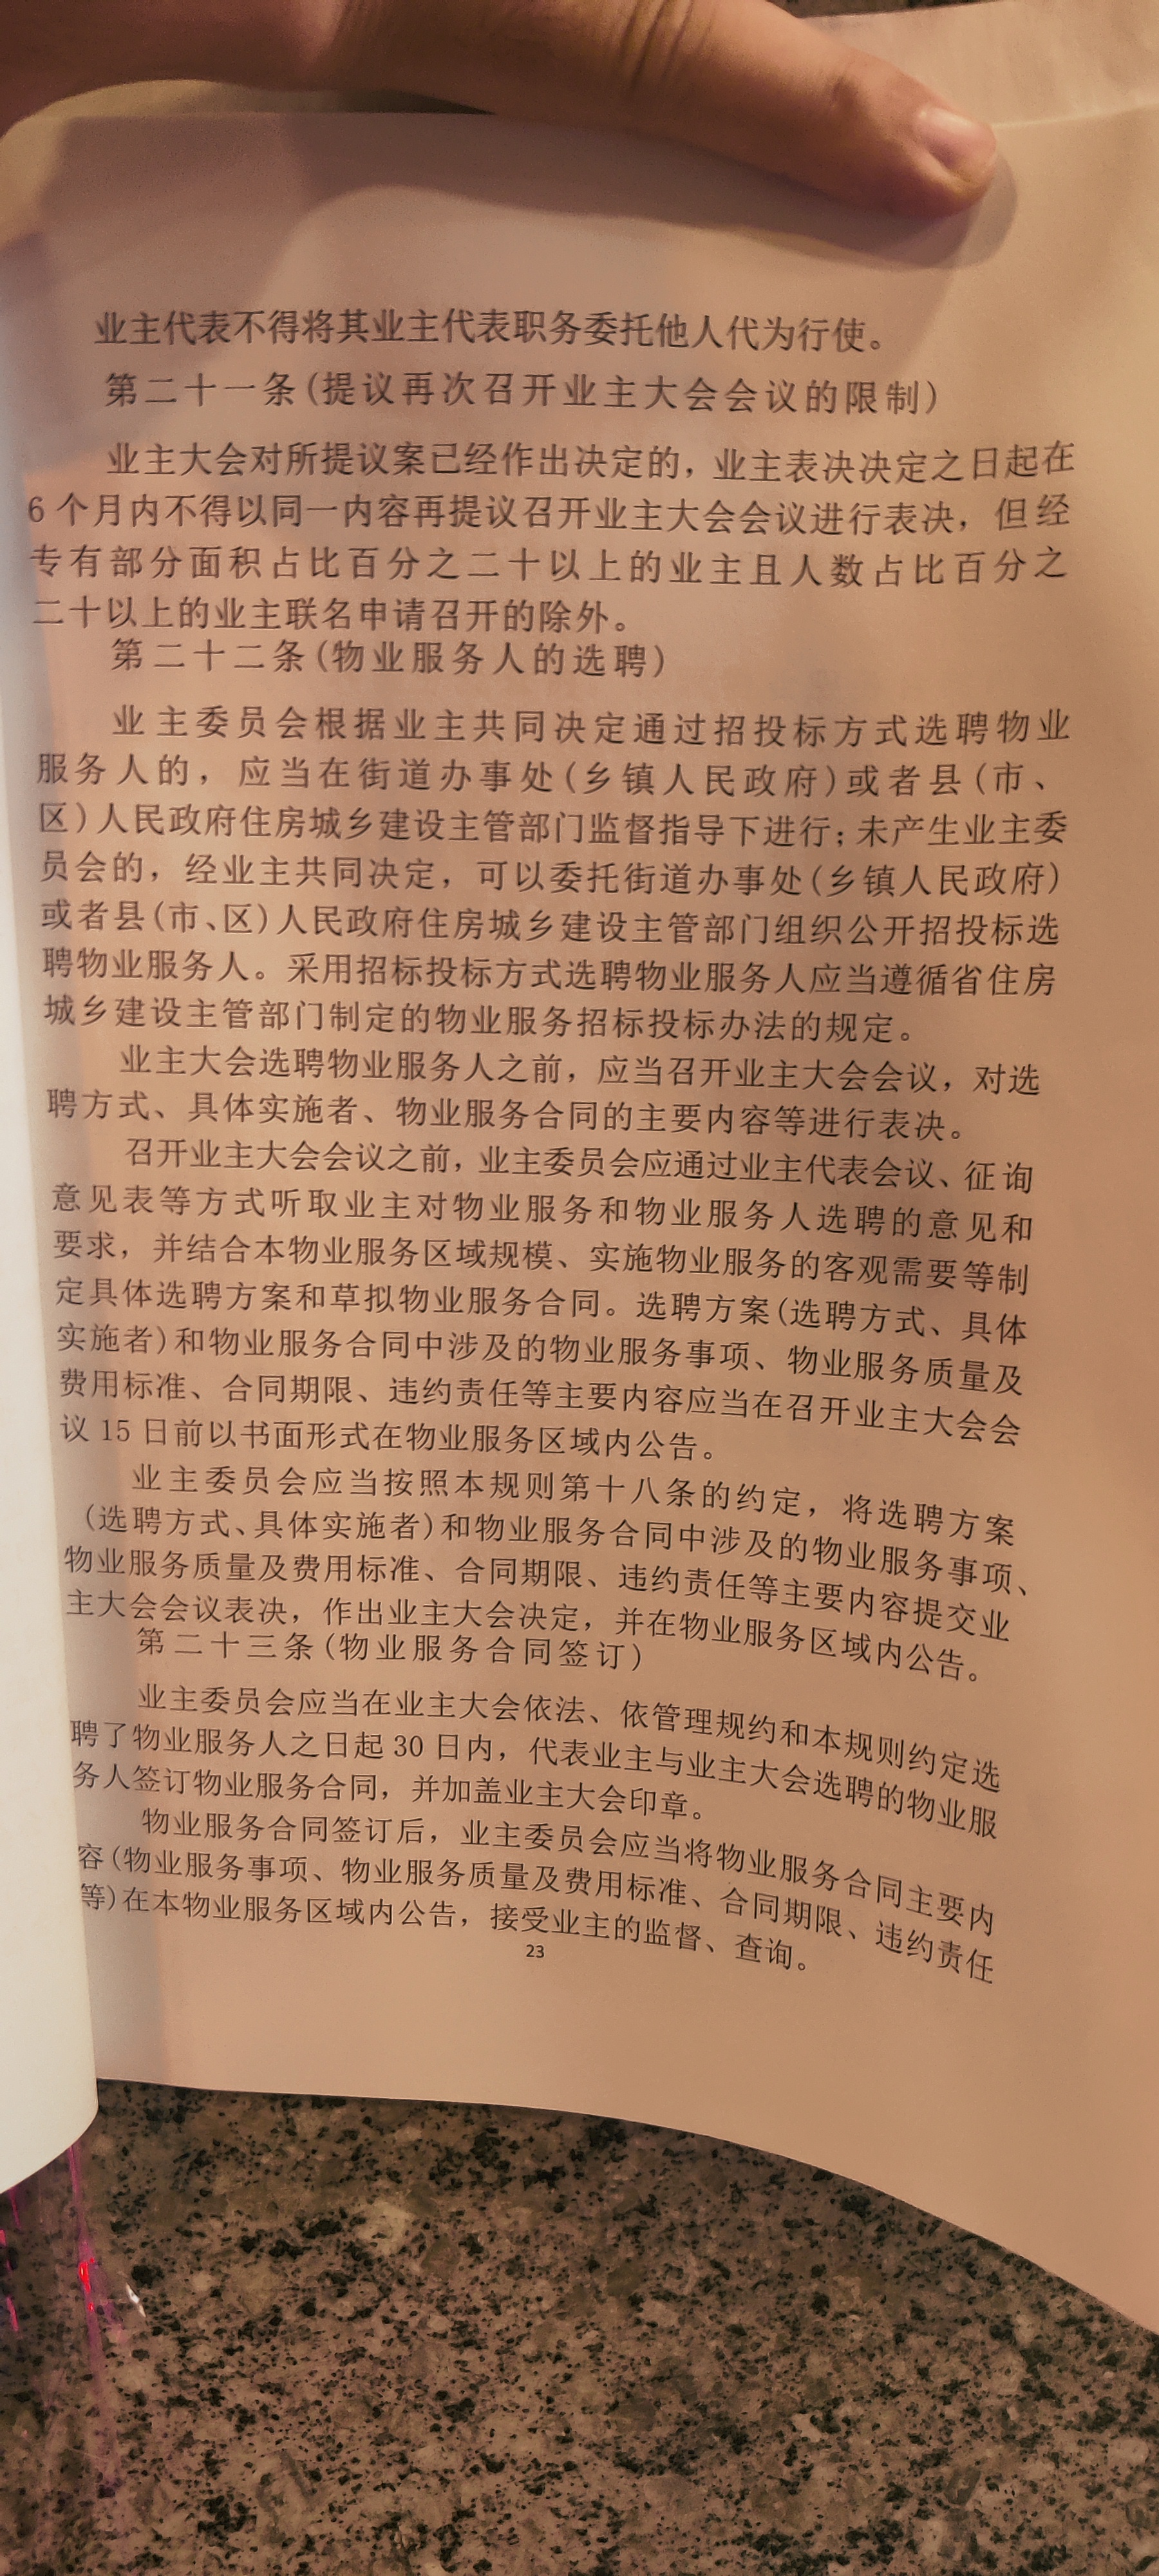 业主代表不得将其业主代表职务委托他人代为行使。
第二十一条(提议再次召开业主大会会议的限制)
业主大会对所提议案已经作出决定的，业主表决决定之日起在
6个月内不得以同一内容再提议召开业主大会会议进行表决，但经
专有部分面积占比百分之二十以上的业主且人数占比百分之
二十以上的业主联名申请召开的除外。
第二十二条(物业服务人的选聘)
业主委员会根据业主共同决定通过招投标方式选聘物业
服务人的，应当在街道办事处(乡镇人民政府)或者县(市、
区)人民政府住房城乡建设主管部门监督指导下进行;未产生业主委
员会的，经业主共同决定，可以委托街道办事处(乡镇人民政府)
或者县(市、区)人民政府住房城乡建设主管部门组织公开招投标选
聘物业服务人。采用招标投标方式选聘物业服务人应当遵循省住房
城乡建设主管部门制定的物业服务招标投标办法的规定。
业主大会选聘物业服务人之前，应当召开业主大会会议，对选
聘方式、具体实施者、物业服务合同的主要内容等进行表决。
召开业主大会会议之前，业主委员会应通过业主代表会议、征询
意见表等方式听取业主对物业服务和物业服务人选聘的意见和
要求，并结合本物业服务区域规模、实施物业服务的客观需要等制
定具体选聘方案和草拟物业服务合同。选聘方案(选聘方式、具体
实施者)和物业服务合同中涉及的物业服务事项、物业服务质量及
费用标准、合同期限、违约责任等主要内容应当在召开业主大会会
议15日前以书面形式在物业服务区域内公告。
业主委员会应当按照本规则第十八条的约定，将选聘方案
(选聘方式、具体实施者)和物业服务合同中涉及的物业服务事项、
物业服务质量及费用标准、合同期限、违约责任等主要内容提交业
主大会会议表决，作出业主大会决定，并在物业服务区域内公告。
第二十三条(物业服务合同签订)
业主委员会应当在业主大会依法、依管理规约和本规则约定选
聘了物业服务人之日起30日内，代表业主与业主大会选聘的物业服
务人签订物业服务合同，并加盖业主大会印章。
物业服务合同签订后，业主委员会应当将物业服务合同主要内
容(物业服务事项、物业服务质量及费用标准、合同期限、违约责任
等)在本物业服务区域内公告，接受业主的监督、查询。
23